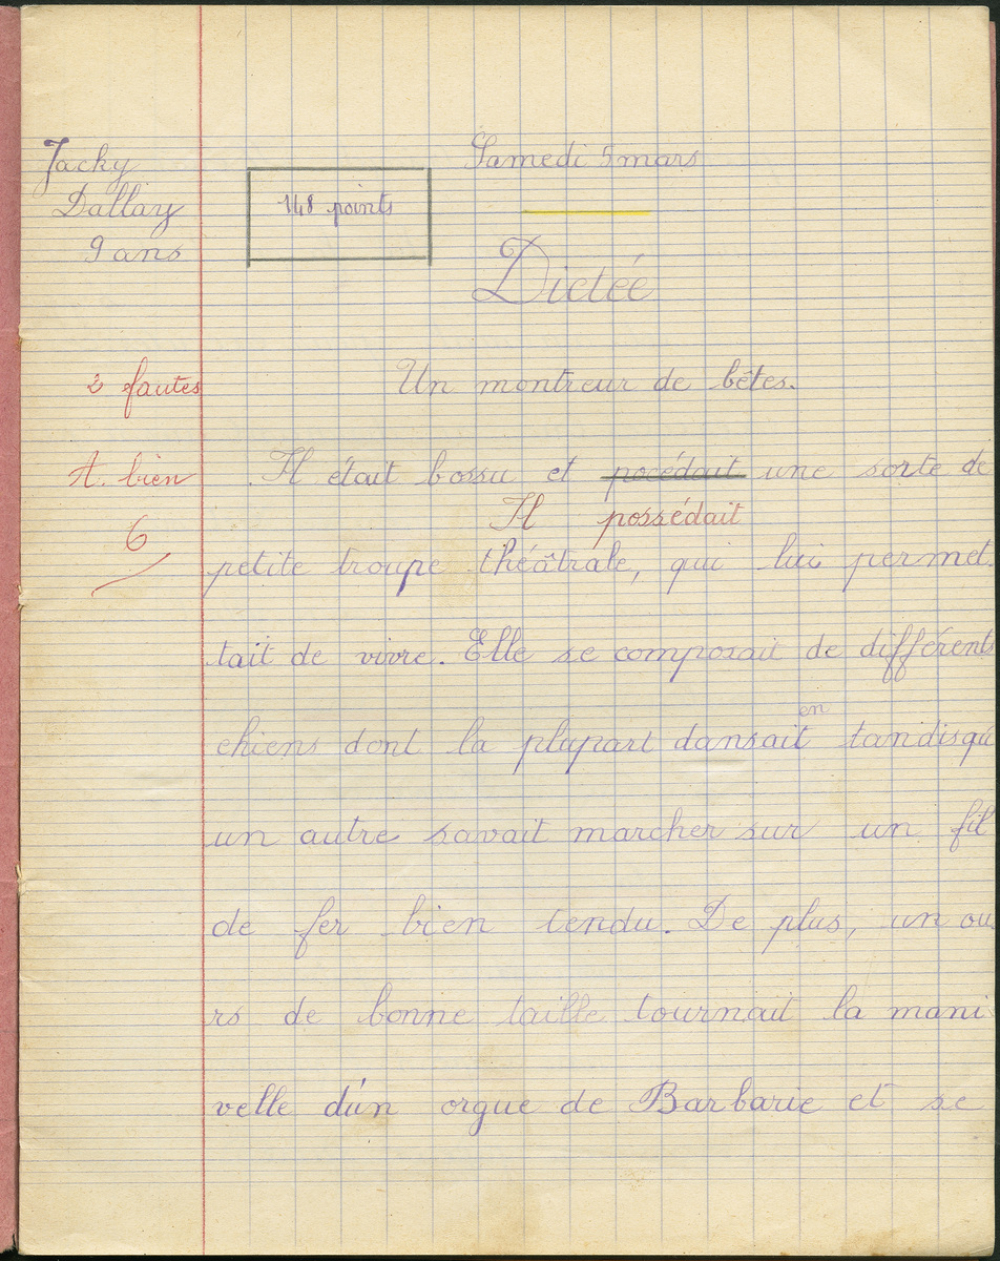 Jacky
Dallary
9 ans
148 points
Samedi 5 mars
Dictée
2 fautes
Un montreur de bêtes.
t. bien
6
Il était bossu et pocédait une sorte de
Il possédait
petite troupe théâtrale, qui lui permet
tait de vivre. Elle se composait de différents
en
chiens dont la plupart dansait tandisqu'
un autre savait marcher sur un fil
de fer bien tendu. De plus, un ou
rs de bonne taille tournait la mani
velle d'un orgue de Barbarie et se